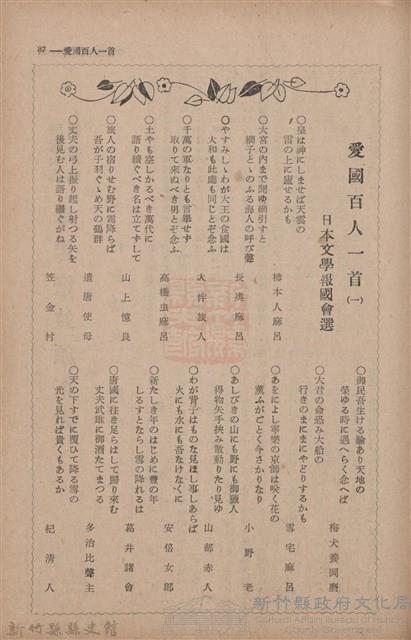 87 ── 愛國百人一首
愛國百人一首 (一)
日本文學報國會選
○皇は神にしませば天雲の
雷の上に廬せるかも
柿本人麻呂
○大宮の內まで聞ゆ網引すと
網子ととのふる海人の呼び聲
長奧麻呂
○やすみししわが大王の食國は
大和も此處も同じとぞ念ふ
大伴旅人
○千萬の軍なりとも言擧せず
取りて來ぬべき男とぞ念ふ
高橋虫麻呂
○士やも空しかるべき萬代に
語り續ぐべき名は立てずして
山上憶良
○旅人の宿りせむ野に霜降らば
吾が子羽ぐくめ天の鶴群
遣唐使母
○丈夫の弓上振り起し射つる矢を
後見む人は語り繼ぐがね
笠金村
○御民吾生ける驗あり天地の
榮ゆる時に遇へらく念へば
海犬養岡麿
○大君の命恐み大船の
行きのまにまにやどりするかも
雪宅麻呂
○あをによし寧樂の京師は咲く花の
薰ふがごとく今さかりなり
小野老
○あしびきの山にも野にも御獵人
得物矢手挾み散動りたり見ゆ
山部赤人
○わが背子はものな思ほし事しあらば
火にも水にも吾なけなくに
安倍女郎
○新たしき年のはじめに豐の年
しるすとならし雪の降れるは
葛井諸會
○唐國に往き足らはして歸り來む
丈夫武雄に御酒たてまつる
多治比鷹主
○天の下すでに覆ひて降る雪の
光を見れば貴くもあるか
紀清人
新竹縣政府文化局
Cultural Affairs Bureau of Hsinchu
新竹縣縣史館